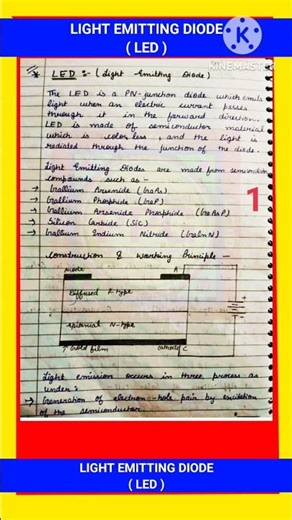 LIGHT EMITTING DIODE
( LED )
K
KINEMASTER
LED :- (Light Emitting Diode)
The LED is a PN-junction diode which emits
light when an electric current passes
through it in the forward direction.
LED is made of semiconductor material
which is color less, and the light is
radiated through the junction of the diode.
Light Emitting Diodes are made from semiconductor
compounds such as -
→ Gallium Arsenide (GaAs)
→ Gallium Phosphide (GaP)
→ Gallium Arsenide Phosphide (GaAsP)
→ Silicon Carbide (SiC)
→ Gallium Indium Nitride (GaInN)
1
Construction & Working Principle -
Anode A
Diffused P-type
epitaxial N-type
Gold film cathode C
Light emission occurs in three process as
under :
→ Generation of electron-hole pair by excitation
of the semiconductor.
LIGHT EMITTING DIODE
( LED )